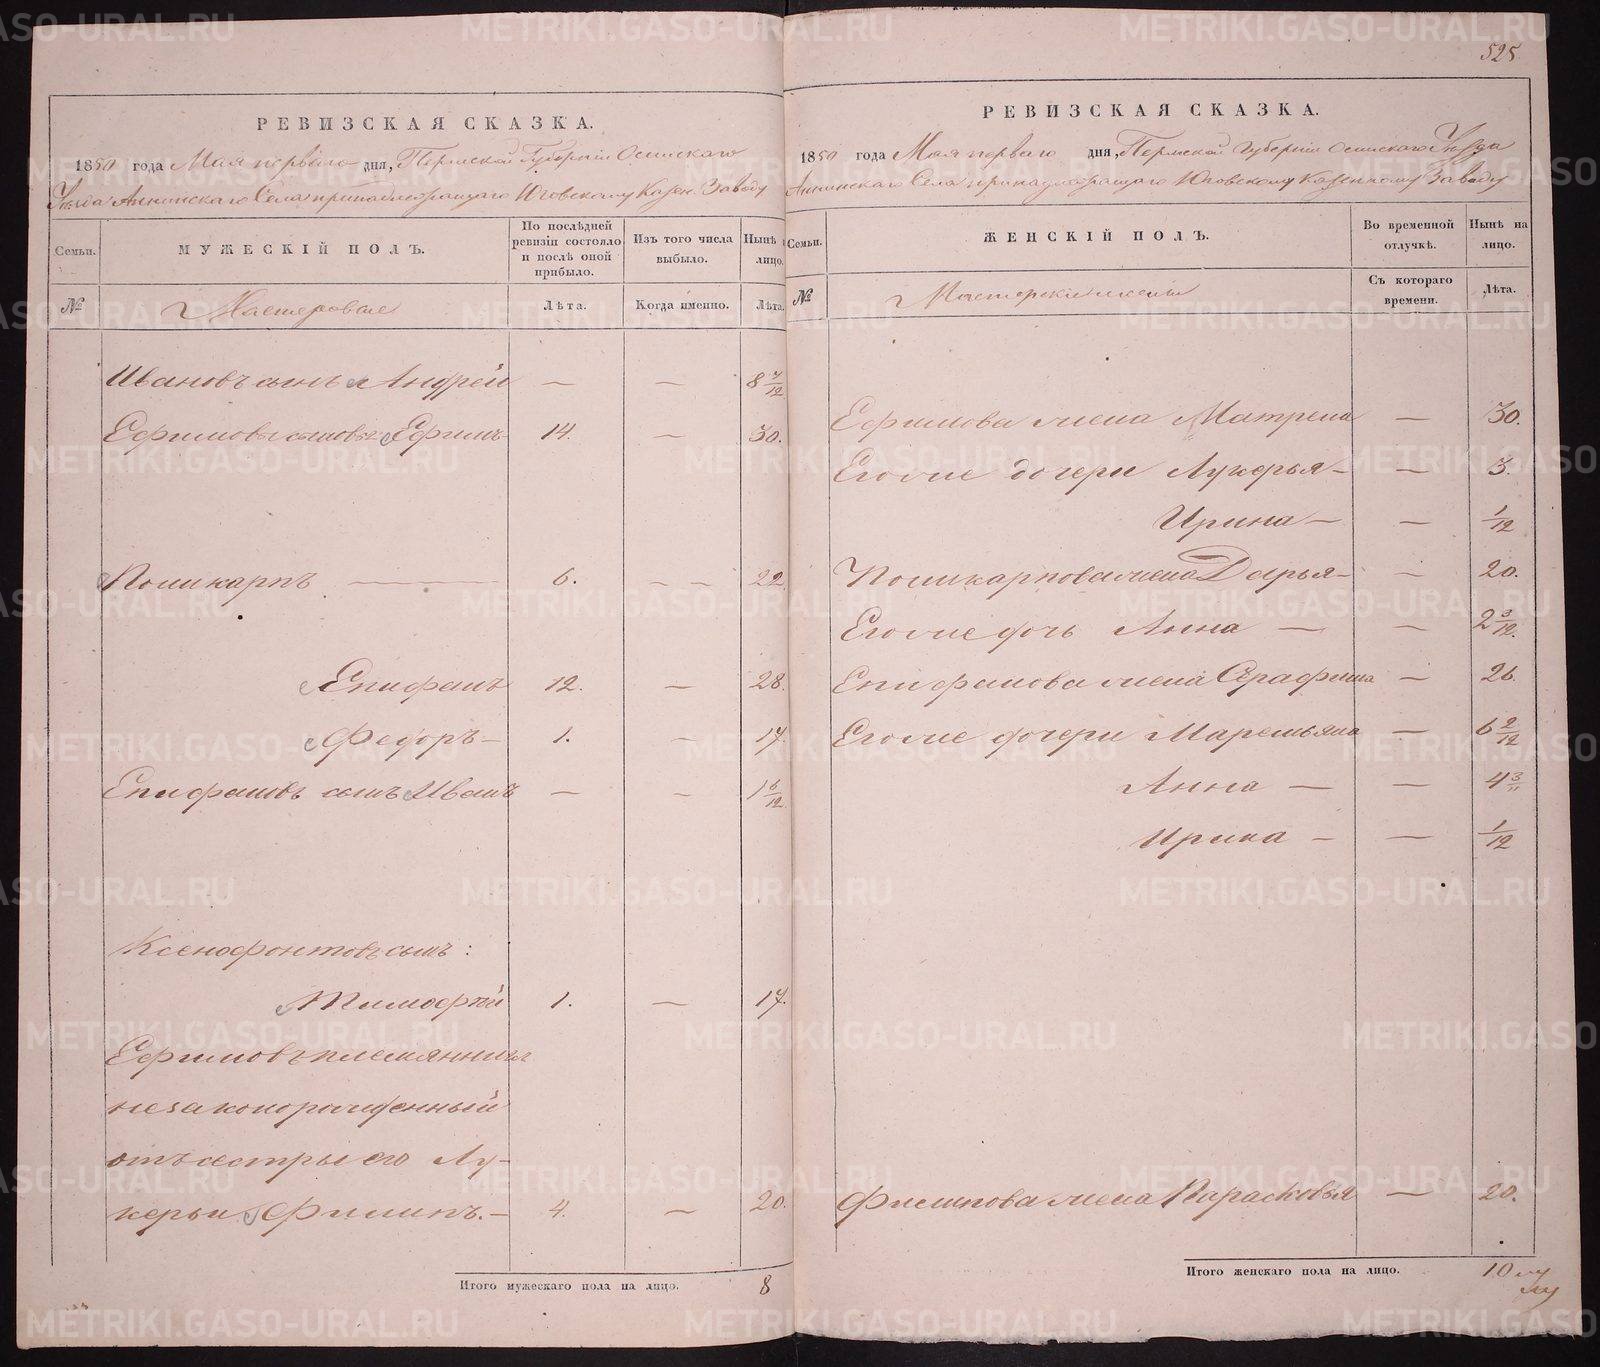 525
РЕВИЗСКАЯ СКАЗКА.
1850 года Мая перваго дня, Пермской Губернiи Осинскаго
Уезда Аннинскаго Села принадлежащаго Юговскому Казен. Заводу
Семьи.
МУЖЕСКІЙ ПОЛЪ.
По послѣдней ревизіи состояло и послѣ оной прибыло.
Изъ того числа выбыло.
Нынѣ на лицо.
№
Мастеровые
Лѣта.
Когда именно.
Лѣта.
Ивановъ сынъ Андрей — — 8 7/12
Ефимовы сыновья Ефимъ 14. — 30.
Поликарпъ — 6. — — 22
Епифанъ 12. — 28.
Федоръ — 1. — 17.
Епифановъ сынъ Иванъ — — 1 6/12
Ксенофонтовъ сынъ:
Тимофѣй 1. — 17.
Ефимовъ племянникъ
незаконорожденный
отъ сестры его Лу-
керьи Филипъ. — 4. — 20.
Итого мужескаго пола на лицо. 8
РЕВИЗСКАЯ СКАЗКА.
1850 года Мая перваго дня, Пермской Губернiи Осинскаго Уезда
Аннинскаго Села принадлежащаго Юговскому Казенному Заводу
Семьи.
ЖЕНСКІЙ ПОЛЪ.
Во временной отлучкѣ.
Нынѣ на лицо.
№
Съ котораго времени.
Лѣта.
Ефимова жена Матрена — 30.
Его же дочери Лукерья — — 3.
Ирина — — 1/12
Поликарпова жена Дарья — — 20.
Его же дочь Анна — — 2 3/12.
Епифанова жена Серафима — 26.
Его же дочери Маремьяна — 6 2/12
Анна — — 4 3/"
Ирина — — 1/12
Филипова жена Парасковья — 20.
Итого женскаго пола на лицо. 10
METRIKI.GASO-URAL.RU